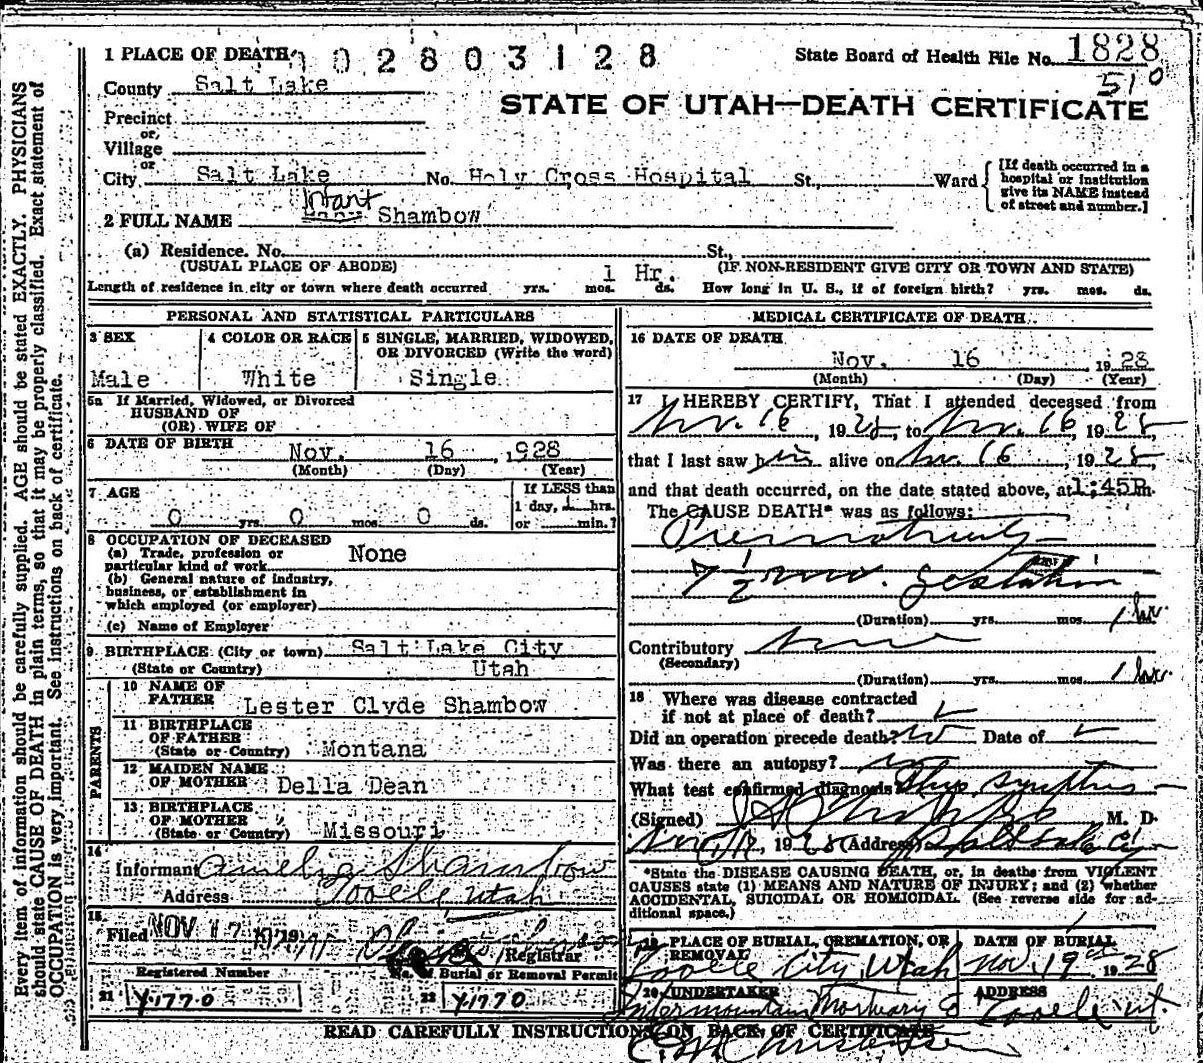 1 PLACE OF DEATH 102803128 State Board of Health File No. 1828
510
County Salt Lake
STATE OF UTAH—DEATH CERTIFICATE
Precinct
or
Village
or
City Salt Lake No. Holy Cross Hospital St., Ward [If death occurred in a hospital or institution give its NAME instead of street and number.]
Infant
2 FULL NAME Shambow
(a) Residence. No. St.,
(USUAL PLACE OF ABODE) (IF NON-RESIDENT GIVE CITY OR TOWN AND STATE)
1 Hr.
Length of residence in city or town where death occurred yrs. mos. ds. How long in U. S., if of foreign birth? yrs. mos. ds.
PERSONAL AND STATISTICAL PARTICULARS
3 SEX 4 COLOR OR RACE 5 SINGLE, MARRIED, WIDOWED,
OR DIVORCED (Write the word)
Male White Single
5a If Married, Widowed, or Divorced
HUSBAND OF
(OR) WIFE OF
6 DATE OF BIRTH Nov. 16 1928
(Month) (Day) (Year)
7 AGE If LESS than
1 day, 1 hrs.
0 yrs. 0 mos. 0 ds. or min.?
8 OCCUPATION OF DECEASED
(a) Trade, profession or
particular kind of work None
(b) General nature of industry,
business, or establishment in
which employed (or employer)
(c) Name of Employer
9 BIRTHPLACE (City or town) Salt Lake City
(State or Country) Utah
PARENTS
10 NAME OF
FATHER Lester Clyde Shambow
11 BIRTHPLACE
OF FATHER
(State or Country) Montana
12 MAIDEN NAME
OF MOTHER Della Dean
13 BIRTHPLACE
OF MOTHER
(State or Country) Missouri
14
Informant Shambow
Address Tooele, Utah
15
Filed NOV 17 Registrar
Registered Number No. of Burial or Removal Permit
21 Y1770 22 Y1770
MEDICAL CERTIFICATE OF DEATH
16 DATE OF DEATH
Nov. 16 1928
(Month) (Day) (Year)
17 I HEREBY CERTIFY, That I attended deceased from
Nov. 16, 1928, to Nov. 16, 1928,
that I last saw him alive on Nov. 16, 1928,
and that death occurred, on the date stated above, at 1:45P m.
The CAUSE DEATH* was as follows:
Prematurity
7 1/2 mo. gestation
(Duration) yrs. mos. 1 hr.
Contributory none
(Secondary)
(Duration) yrs. mos. 1 hr.
18 Where was disease contracted
if not at place of death?
Did an operation precede death? no Date of
Was there an autopsy? no
What test confirmed diagnosis?
(Signed) M. D.
Nov. 17, 1928 (Address) Salt Lake City
*State the DISEASE CAUSING DEATH, or, in deaths from VIOLENT
CAUSES state (1) MEANS AND NATURE OF INJURY; and (2) whether
ACCIDENTAL, SUICIDAL OR HOMICIDAL. (See reverse side for ad-
ditional space.)
19 PLACE OF BURIAL, CREMATION, OR REMOVAL DATE OF BURIAL
Tooele City, Utah Nov. 19 1928
20 UNDERTAKER ADDRESS
Intermountain Mortuary Tooele Ut.
READ CAREFULLY INSTRUCTIONS ON BACK OF CERTIFICATE
Every item of information should be carefully supplied. AGE should be stated EXACTLY. PHYSICIANS
should state CAUSE OF DEATH in plain terms, so that it may be properly classified. Exact statement of
OCCUPATION is very important. See instructions on back of certificate.